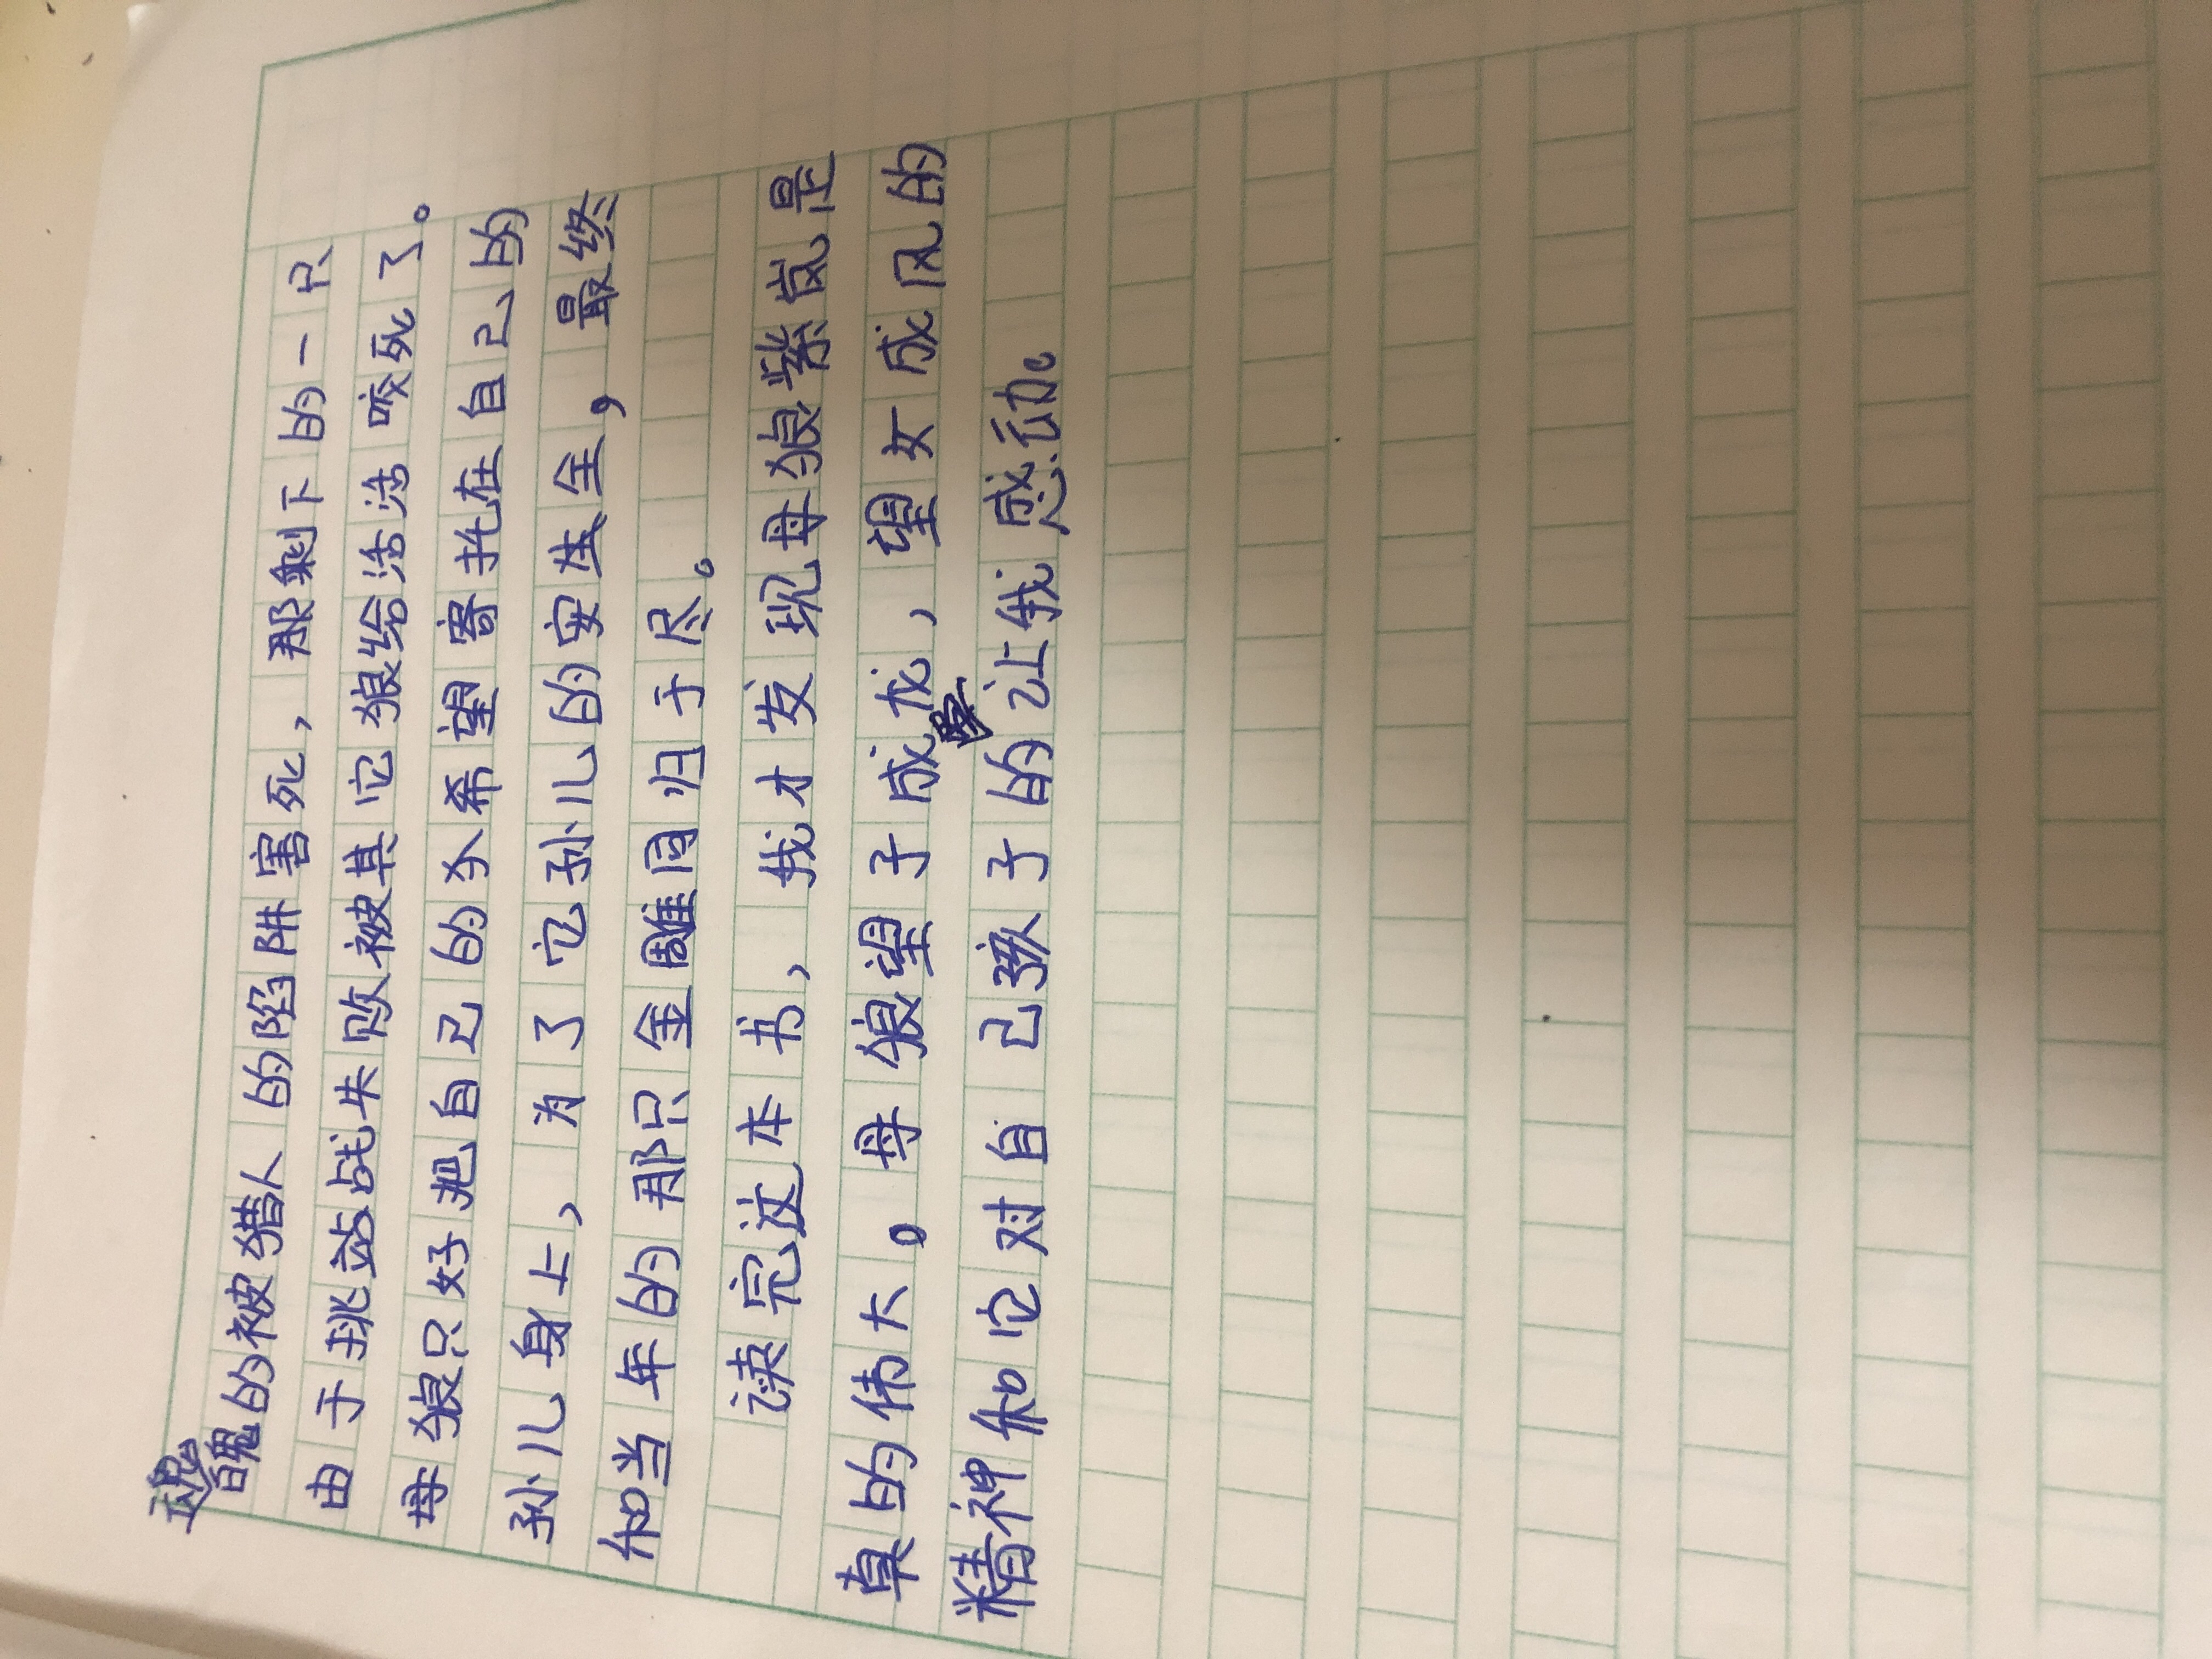 魂的被猎人的陷阱害死，那剩下的一只
由于挑战失败被其它狼给活活咬死了。
母狼只好把自己的希望寄托在自己的
孙儿身上，为了它孙儿的安全，最终
和当年的那只金雕同归于尽。
读完这本书，我才发现母狼紫岚是
真的伟大。母狼望子成龙，望女成凤的
精神和它对自己孩子的让我感动。